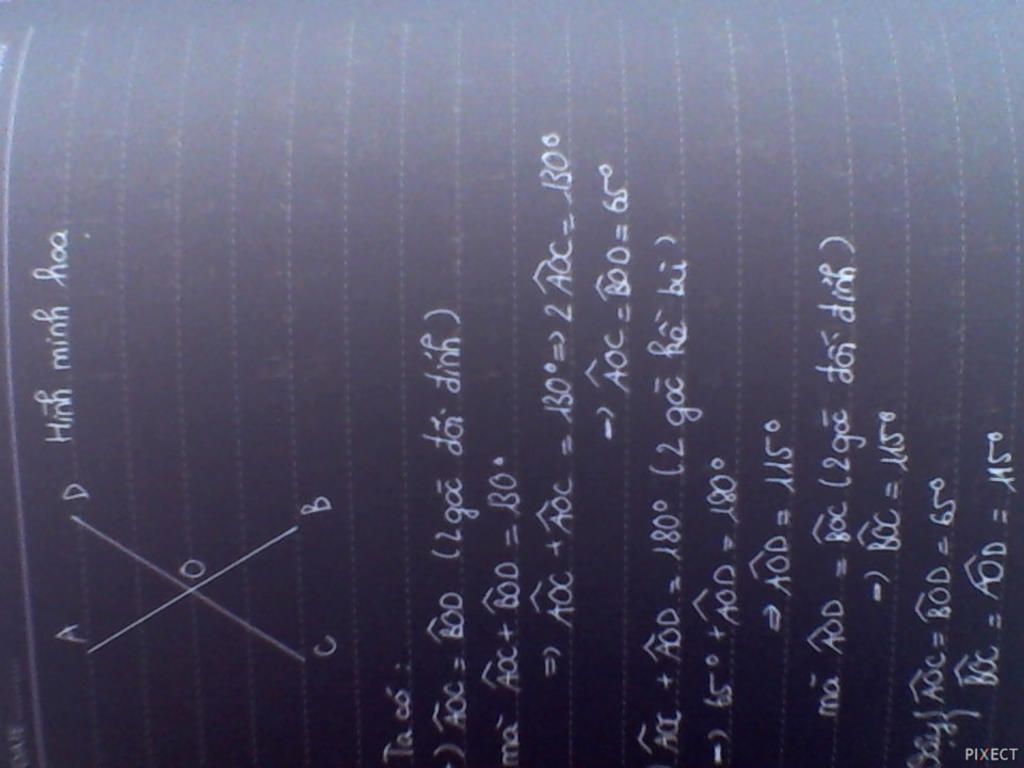 Hình minh hoa
A D
O
C B
Ta có:
) AOC = BOD (2 góc đối đỉnh)
mà AOC + BOD = 130°
=) AOC + AOC = 130° => 2 AOC = 130°
=) AOC = BOD = 65°
AOC + AOD = 180° (2 góc kề bù)
=) 65° + AOD = 180°
=> AOD = 115°
mà AOD = BOC (2 góc đối đỉnh)
=) BOC = 115°
AOC = BOD = 65°
BOC = AOD = 115°
PIXECT